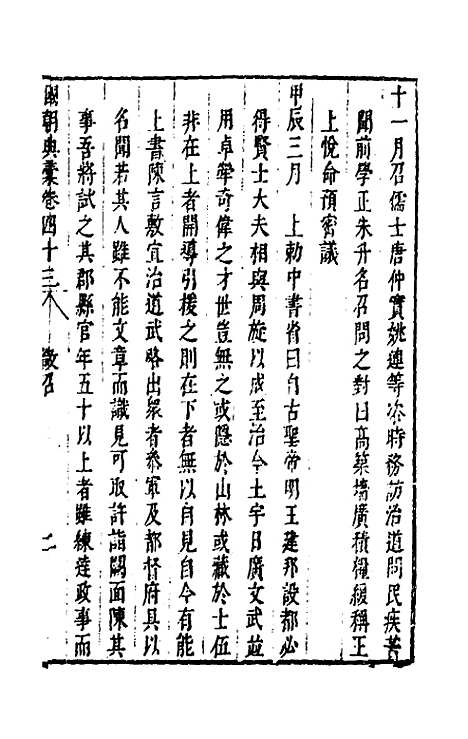 十一月召儒士唐仲實姚璉等咨時務訪治道問民疾苦
聞前學正朱升名召問之對曰高築墻廣積糧緩稱王
上悅命預密議
甲辰三月　上勅中書省曰自古聖帝明王建邦設都必
得賢士大夫相與周旋以成至治今土宇日廣文武並
用卓犖奇偉之才世豈無之或隱於山林或藏於士伍
非在上者開導引援之則在下者無以自見自今有能
上書陳言敷宣治道武略出衆者參軍及都督府具以
名聞若其人雖不能文章而識見可取許詣闕面陳其
事吾將試之其郡縣官年五十以上者雖練達政事而
國朝典彙卷四十三　徵召　二